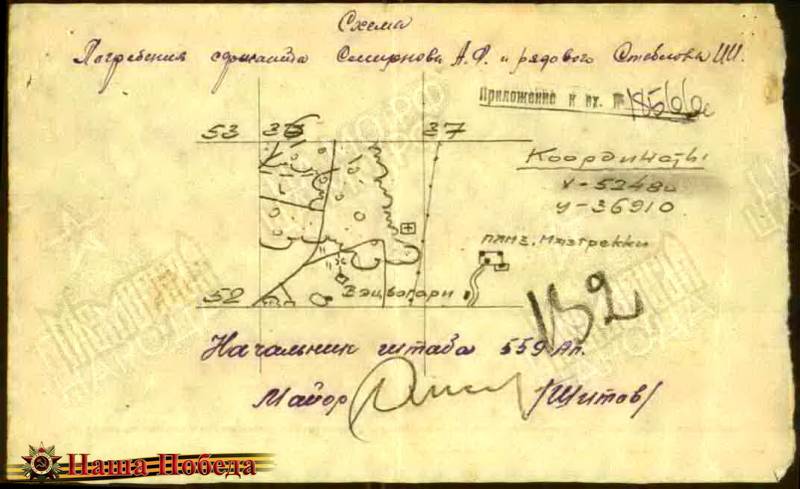 Схема
Погребения сержанта Смирнова А.Ф. и рядового Стеблова И.И.
Приложение к вх. №18566с
53 36 37
Координаты
х-52480
у-36910
пам. Мяэтрекки
52
Вэцьвогари
132
Начальник штаба 559 Ап.
Майор /Шитов/
Наша Победа